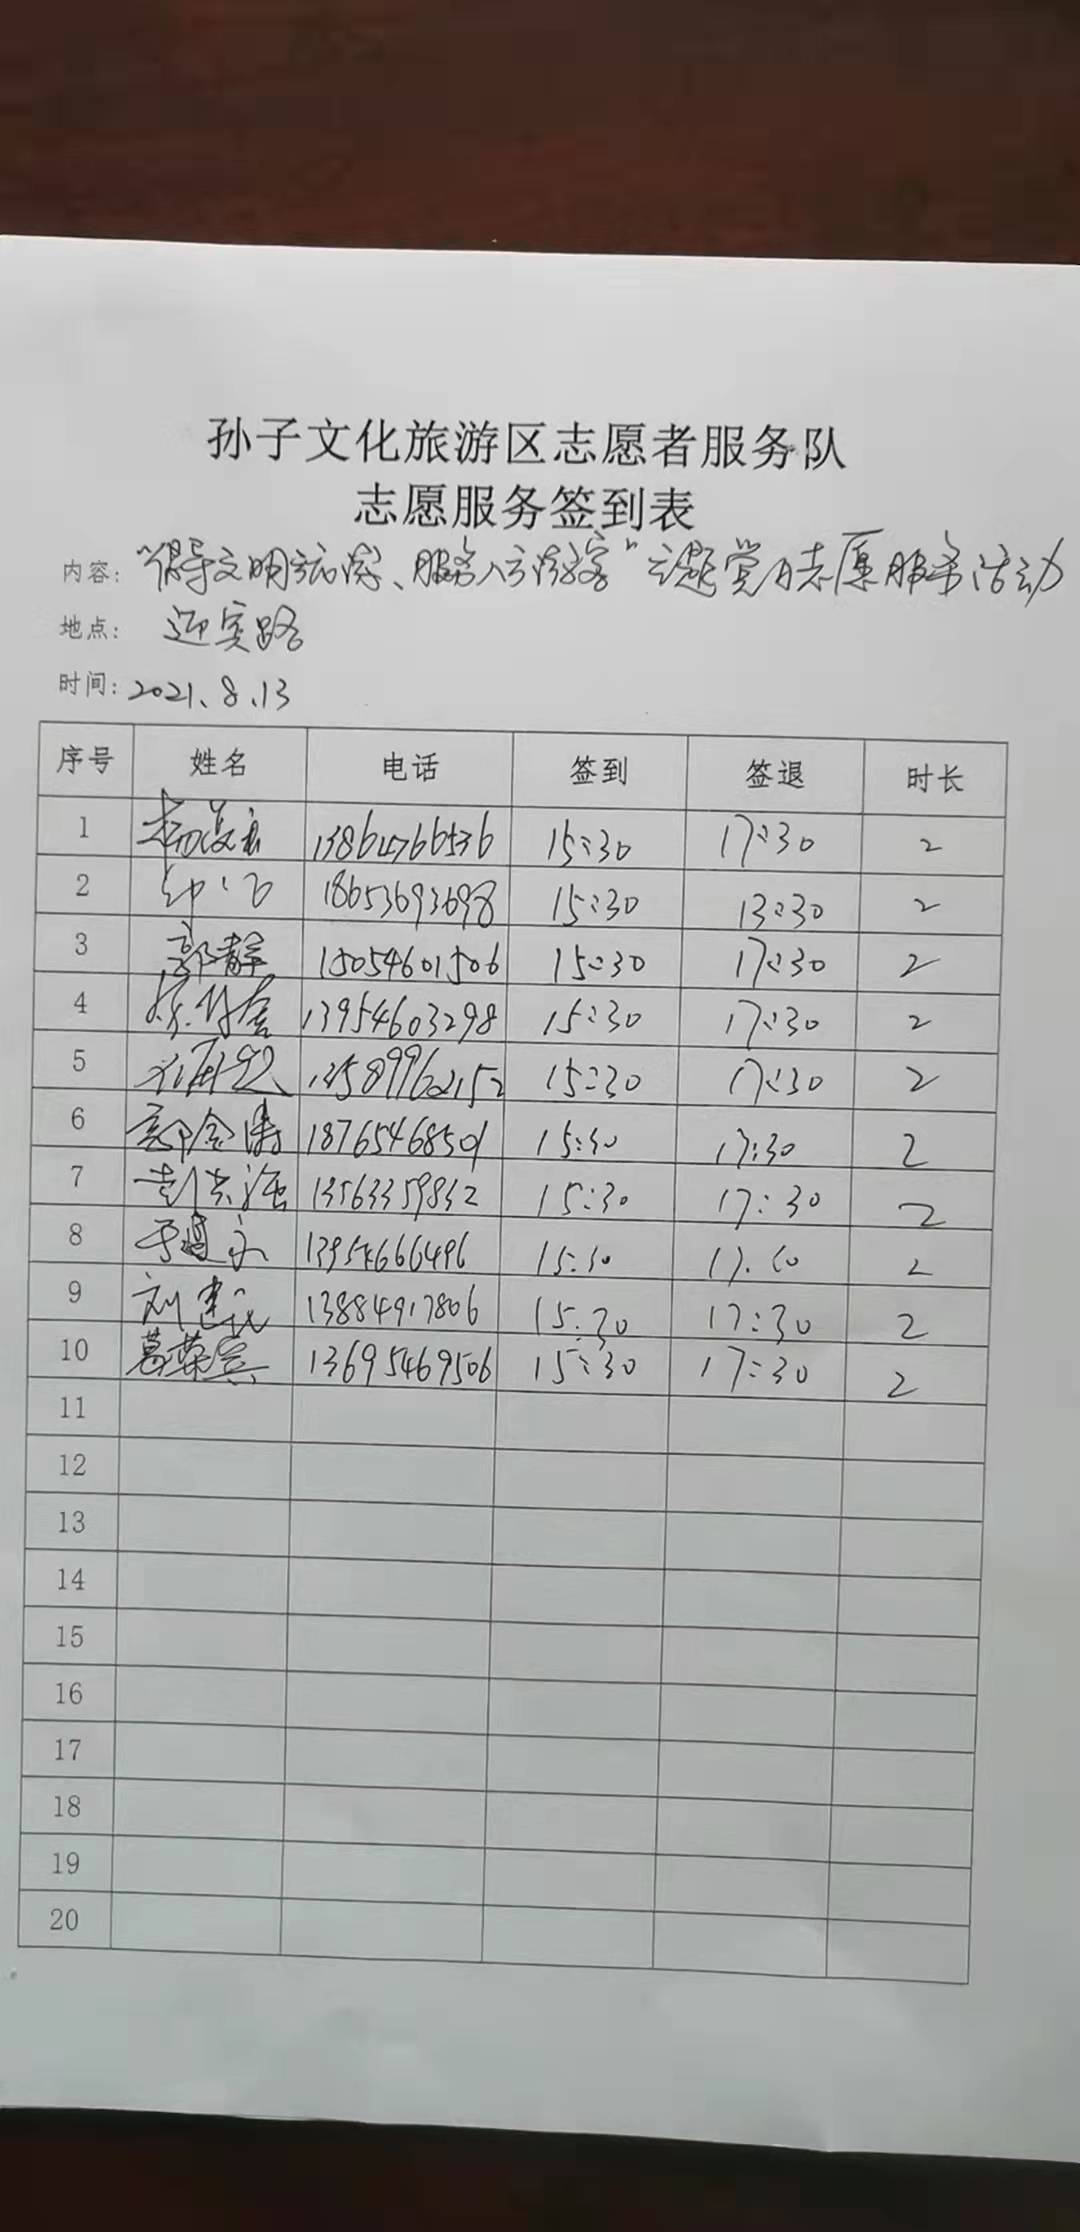 孙子文化旅游区志愿者服务队
志愿服务签到表
内容: “倡导文明旅游、服务八方游客”主题党日志愿服务活动
地点: 迎宾路
时间: 2021、8、13
序号 姓名 电话 签到 签退 时长
1 13864766536 15:30 17:30 2
2 18653693698 15:30 13:30 2
3 郭静 15054601506 15:30 17:30 2
4 13954603298 15:30 17:30 2
5 15:30 17:30 2
6 郭金涛 18765468501 15:30 17:30 2
7 彭志强 13563359832 15:30 17:30 2
8 于遵永 13954666496 15:30 2
9 刘建 13884917806 15:30 17:30 2
10 葛荣宾 13695469506 15:30 17:30 2
11
12
13
14
15
16
17
18
19
20